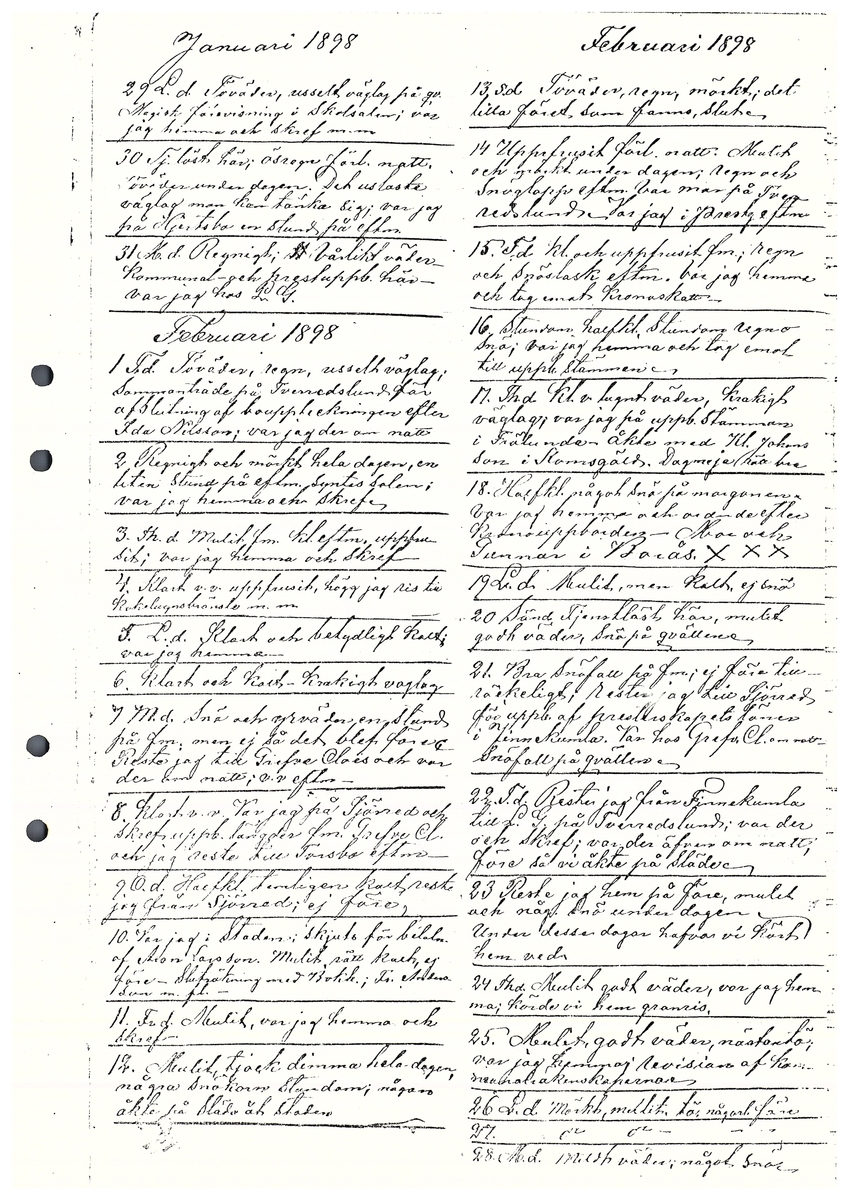 Januari 1898
29 L. d. Töväder, usselt väglag på gv.
Magisk förevisning i Skolsalen; var
jag hemma och skref m. m
30 Tj. läst här; ösregn förl. natt.
Töväder under dagen. Det uslaste
väglag man kan tänka sig; var jag
på Hjertsbo en Stund på eftm
31 M. d. Regnigt; vårlikt väder
Kommunal- och prestuppb. här
var jag hos
Februari 1898
1 Td. Töväder, regn, usselt väglag;
Sammanträde på Tverredslund för
afslutning af bouppteckningen efter
Ida Nilsson; var jag der om natt
2. Regnigt och mörkt hela dagen, en
liten Stund på eftm. syntes solen;
var jag hemma och skref
3. Th. d Mulit fm. kl. eftm. uppfru
sit; var jag hemma och skref
4. Klart v. v. uppfrusit, högg jag ris till
kakelugnsbränsle m. m
5. L. d. Klart och betydligt kalt;
var jag hemma
6. Klart och kalt – Krakigt väglag
7 M.d. Snö och yrväder en Stund
på fm. men ej så det blef före
Reste jag till Grefve Claes och var
der om natt; v. v eftm
8. Klart v. v. Var jag på Sjörred och
skref uppb. längder fm. Grefve Cl.
och jag reste till Torsbo eftm
9 O.d. Halfkl. temligen kalt, reste
jag från Sjörred; ej före
10. Var jag i Staden; skjuts för betaln.
af Aron Larsson. Mulit, rätt kalt, ej
före – Sluträkning med
son m. fl
11. Frd. Mulit, var jag hemma och
Skref
12. Mulit, tjock dimma hela dagen,
några Snökorn Stundom; någon
åkte på Släde åt Staden
Februari 1898
13. Sd Töväder, regn, mörkt; det
lilla föret Som fanns, Slut
14 Uppfrusit förl. natt. Mulit
och mörkt under dagen; regn och
Snöglopp eftm. Var mor på Tver
redslund. Var jag i Prestg eftm
15. Td kl. och uppfrusit fm.; regn
och Snöslask eftm. Var jag hemma
och tog emot Kronoskatt
16. Stundom halfkl. Stundom regn o
Snö; var jag hemma och tog emot
till uppb. Stämman
17. Thd kl. v lugnt väder, krakigt
väglag; var jag på uppb. Stämman
i Frälunda åkte med Kl. Johans
son i Komsgärde. Dagmeja rätt bra
18. Halfkl. något Snö på morgonen
Var jag hemma och ordnade efter
Kronouppbörden – Mor och
Gunnar i Borås. X X X
19 L. d. Mulit, men kalt, ej snö
20 Sönd Tjenstläst här, mulit
godt väder, Snö på qvällen
21. Bra Snöfall på fm; ej före till-
räckeligt; reste jag till Sjörred
för uppb. af presterskapets löner
i Finnekumla. Var hos Grefve Cl. om natt
Snöfall på qvällen
22. Td. Reste jag från Finnekumla
till på Tverredslund; var der
och skref; var der äfven om natt;
före så vi åkte på Släde
23 Reste jag hem på före, mulit
och någ. Snö under dagen
Under dessa dagar hafva vi kört
hem ved
24 Thd. Mulit godt väder, var jag hem-
ma; körde vi hem granris.
25. Mulit, godt väder, nästan tö;
var jag hemma; revision af kom-
munalräkenskaperna
26 L.d. Mörkt, mulit, tö, något före
27. d:o d:o
28. M.d. Mildt väder; något Snö